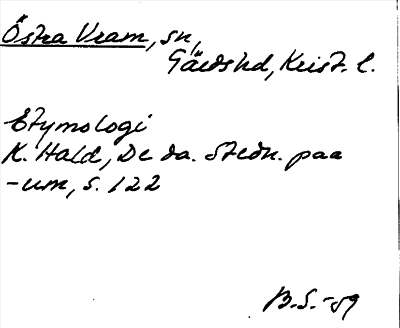 Östra Vram, sn,
Gärdshd, Krist. l.
Etymologi
K. Hald, De da. Stedn. paa
-um, s. 122
B.S. -59